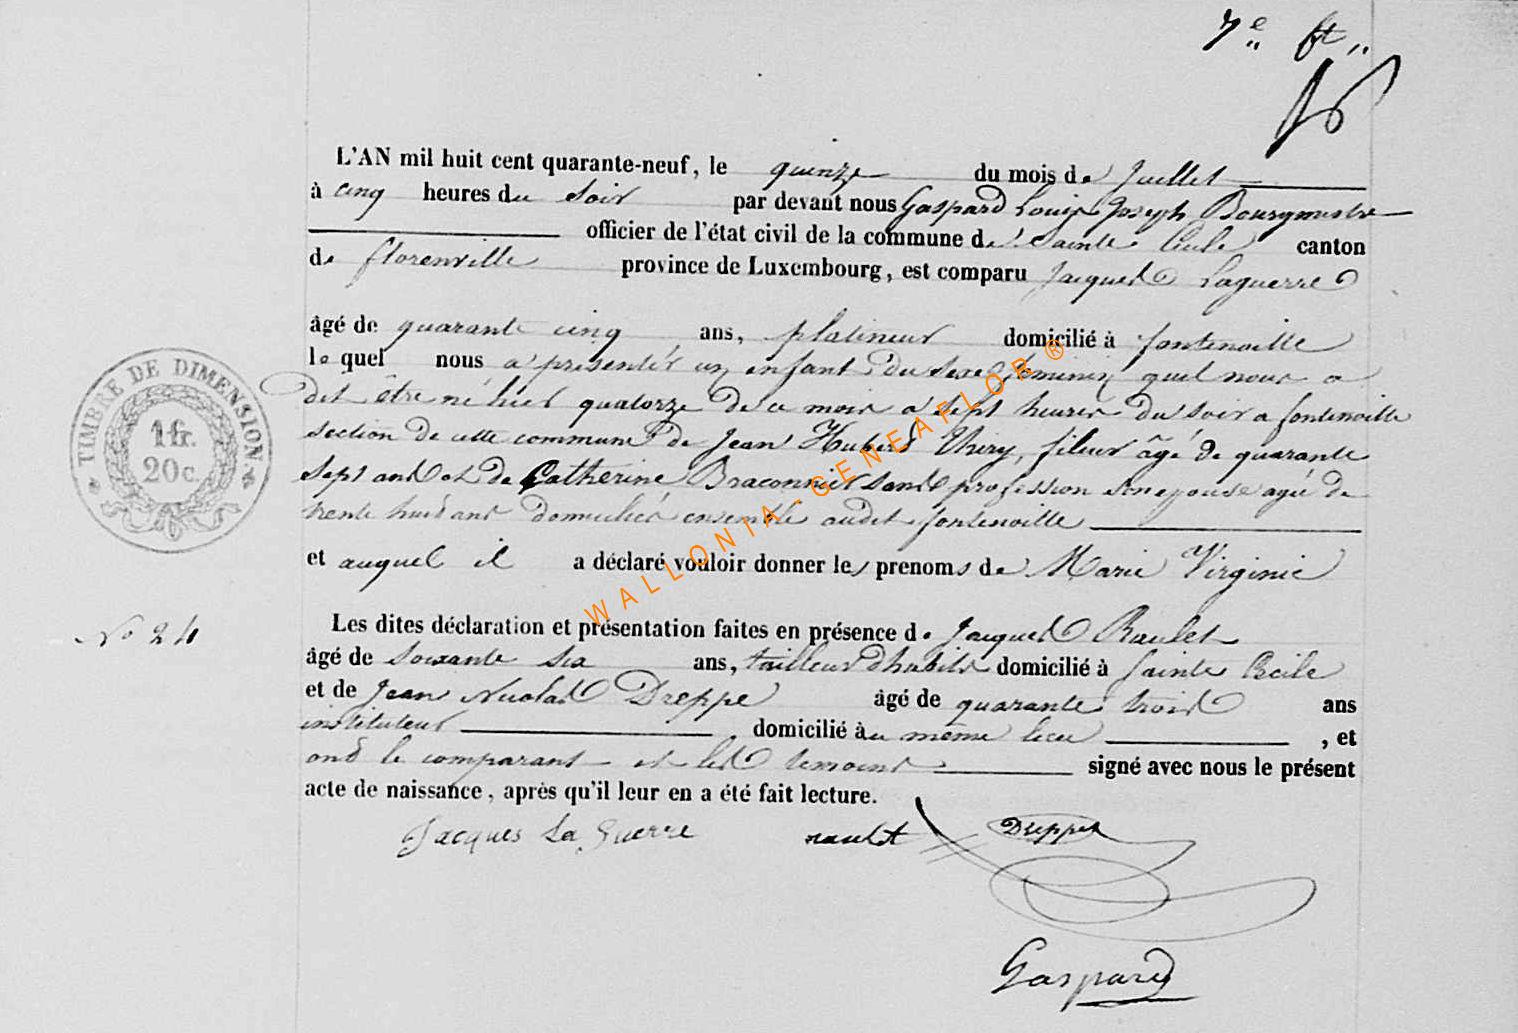 7e ft
L'AN mil huit cent quarante-neuf, le quinze du mois de Juillet
à cinq heures du soir par devant nous Gaspard Louis Joseph Bourgmestre
officier de l'état civil de la commune de Sainte Cecile canton
de florenville province de Luxembourg, est comparu Jacques Laguerre
âgé de quarante cinq ans, platineur domicilié à fontenoille
le quel nous a présenté un enfant du sexe feminin quel nous a
dit être né hier quatorze de ce mois a sept heures du soir a fontenoille
section de cette commune de Jean Hubert Thiry, fileur âgé de quarante
sept ans et de Catherine Braconnier sans profession son epouse agée de
trente huit ans domiciliés ensemble audit fontenoille
et auquel il a déclaré vouloir donner les prenoms de Marie Virginie
Les dites déclaration et présentation faites en présence de Jacques Raulet
âgé de soixante six ans, tailleur d'habits domicilié à Sainte Cecile
et de Jean Nicolas Dreppe âgé de quarante trois ans
instituteur domicilié au même lieu , et
ont le comparant et les temoins signé avec nous le présent
acte de naissance, après qu'il leur en a été fait lecture.
Jacques La Guerre raulet Dreppe
Gaspard
TIMBRE DE DIMENSION
1 fr.
20 c.
No 24
WALLONIA-GENEAFLOR®